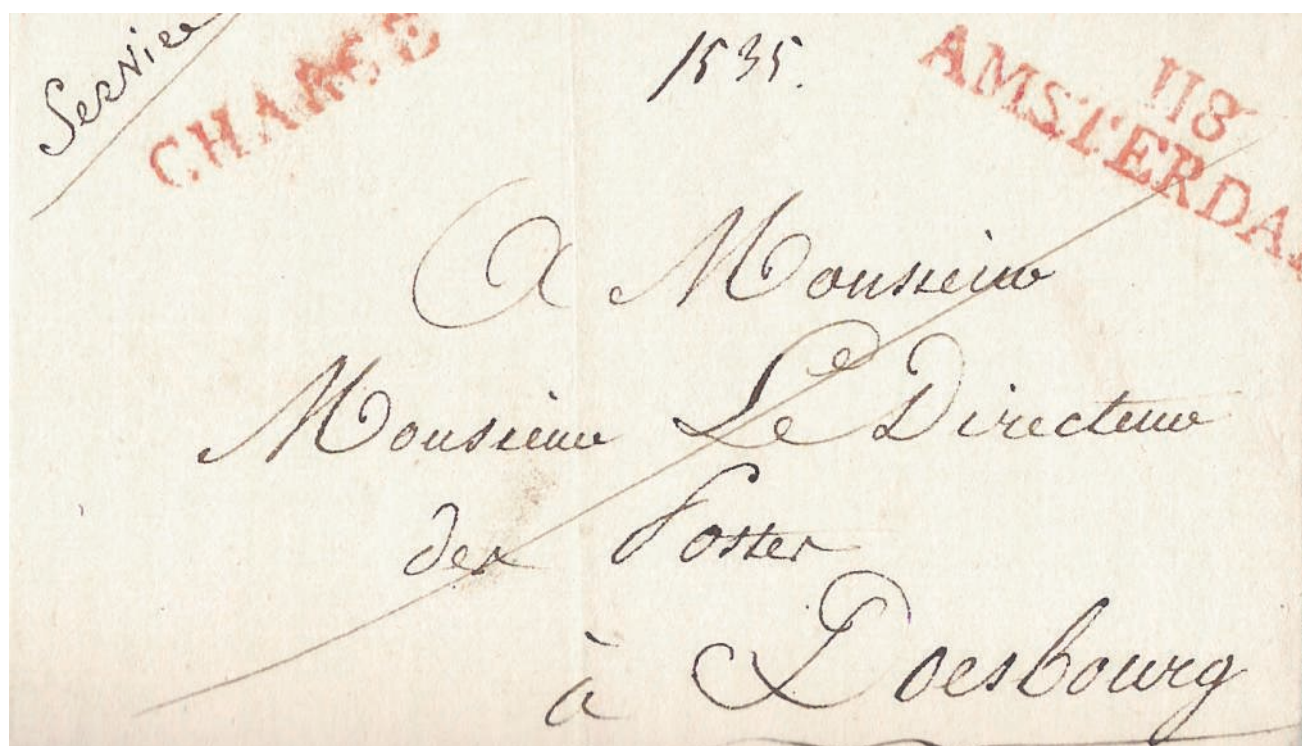 Service
CHARGE
1535.
118
AMSTERDA
A Monsieur
Monsieur Le Directeur
des Postes
à Doesbourg